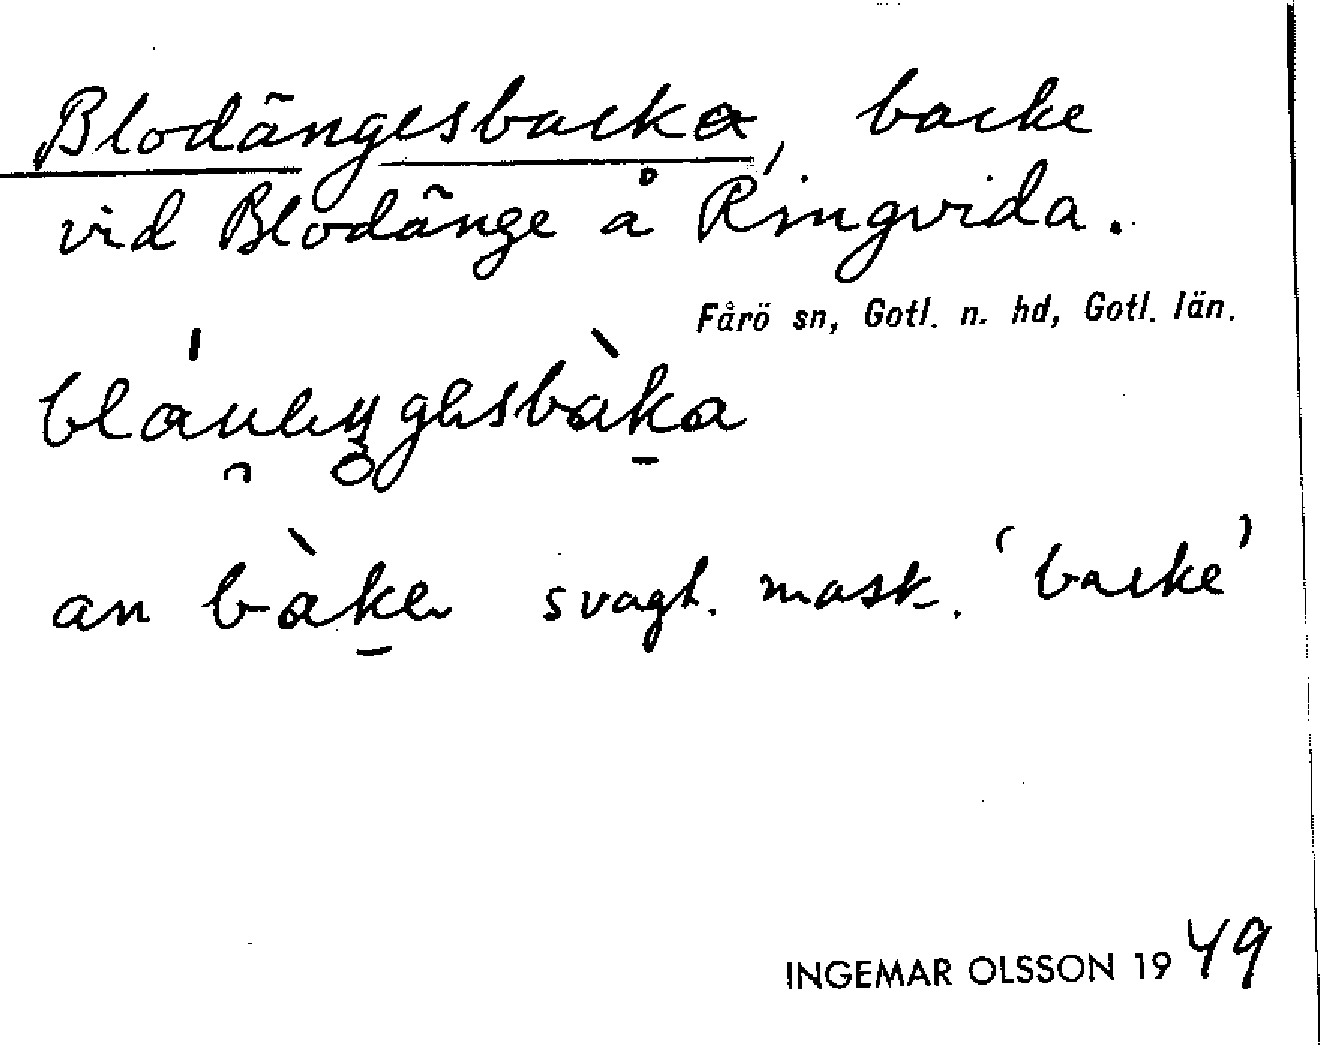 Blodängesbacka, backe
vid Blodänge å Ringvida.
Fårö sn, Gotl. n. hd, Gotl. län.
an bàke svagt. mask. 'backe'
INGEMAR OLSSON 1949